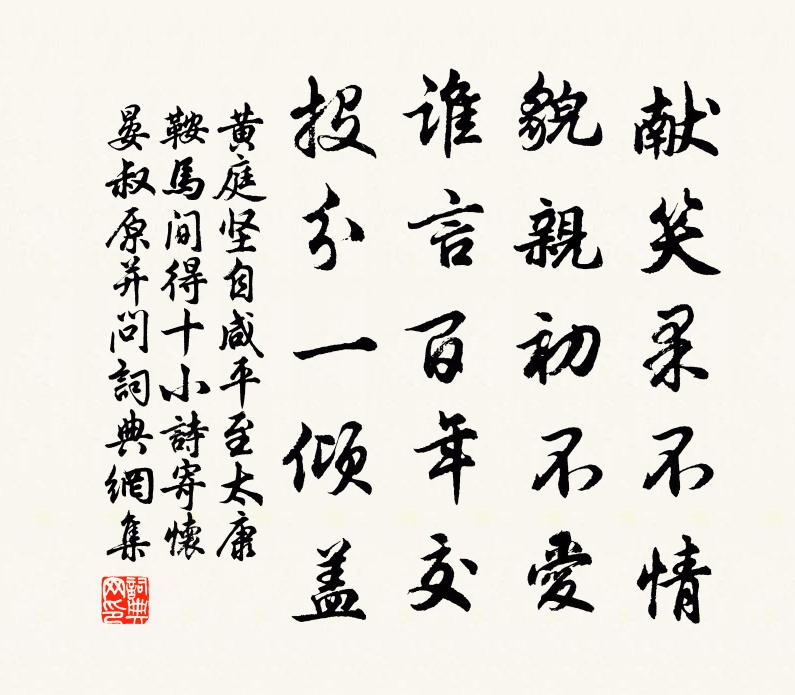 献笑果不情
貌親初不愛
谁言百年交
投分一倾盖
黄庭坚自咸平至太康
鞍馬间得十小詩寄懷
晏叔原并问詞典網集
詞典网印